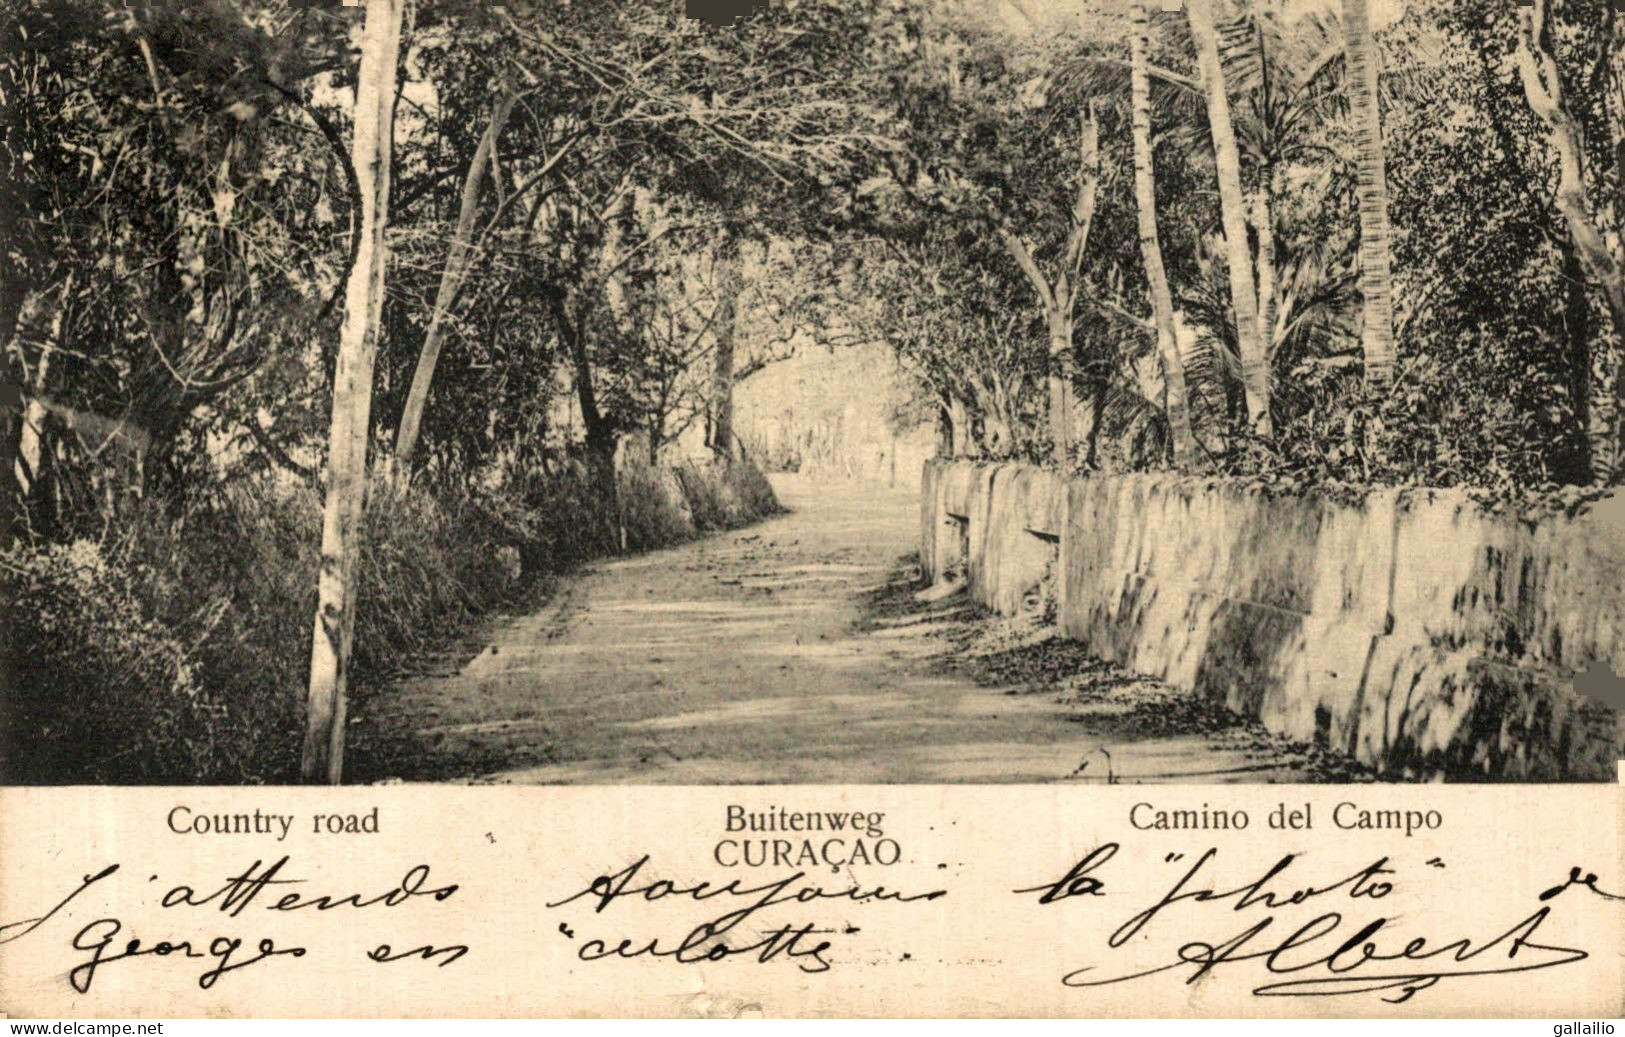 Country road
Buitenweg
Camino del Campo
CURAÇAO
J'attends toujours la "photo" de
Georges en "culotte".
Albert
www.delcampe.net
gallailio